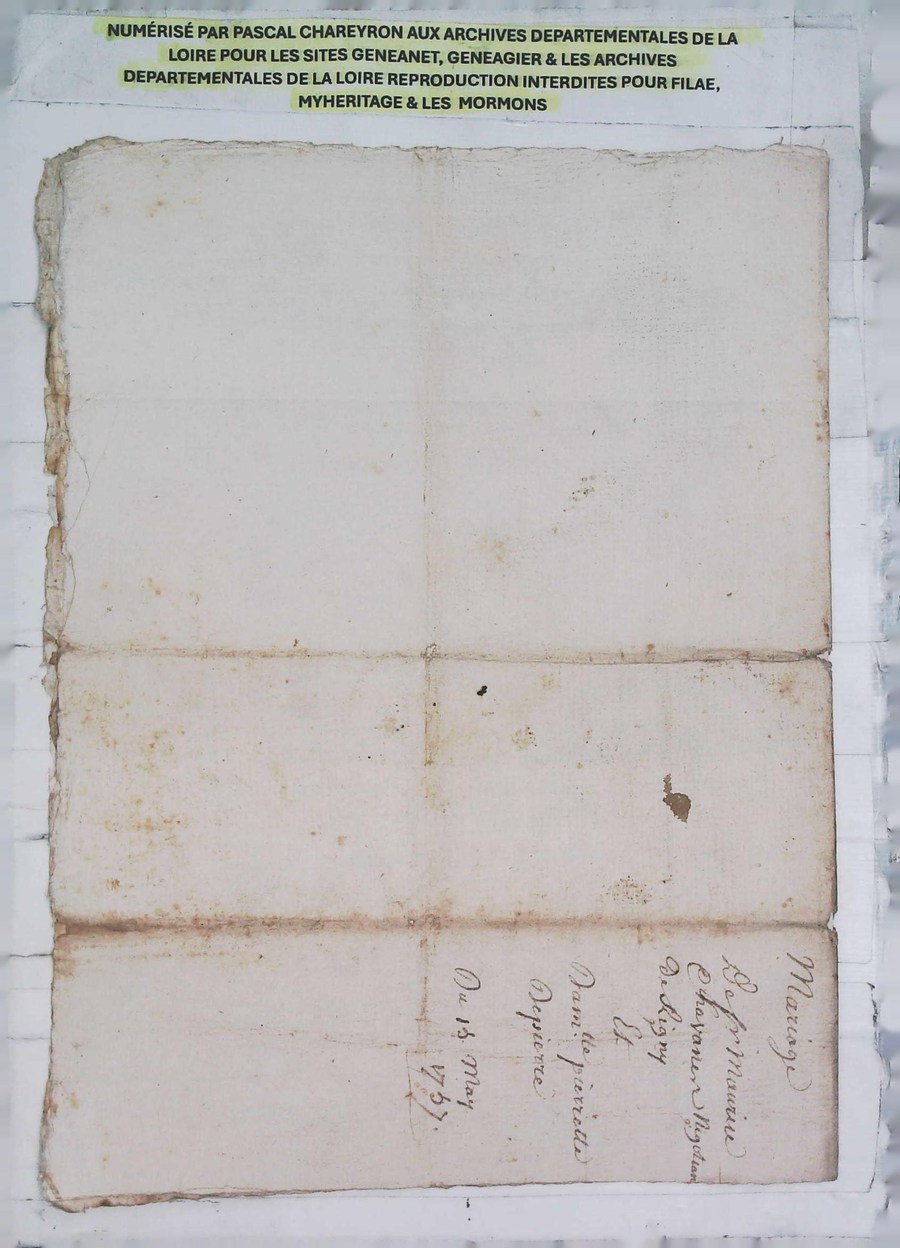 NUMÉRISÉ PAR PASCAL CHAREYRON AUX ARCHIVES DEPARTEMENTALES DE LA
LOIRE POUR LES SITES GENEANET, GENEAGIER & LES ARCHIVES
DEPARTEMENTALES DE LA LOIRE REPRODUCTION INTERDITES POUR FILAE,
MYHERITAGE & LES MORMONS
Mariage
De sr Maurice
Chavanen
De Rigny
Et
Dam.lle pierrette
Depierre
Du May